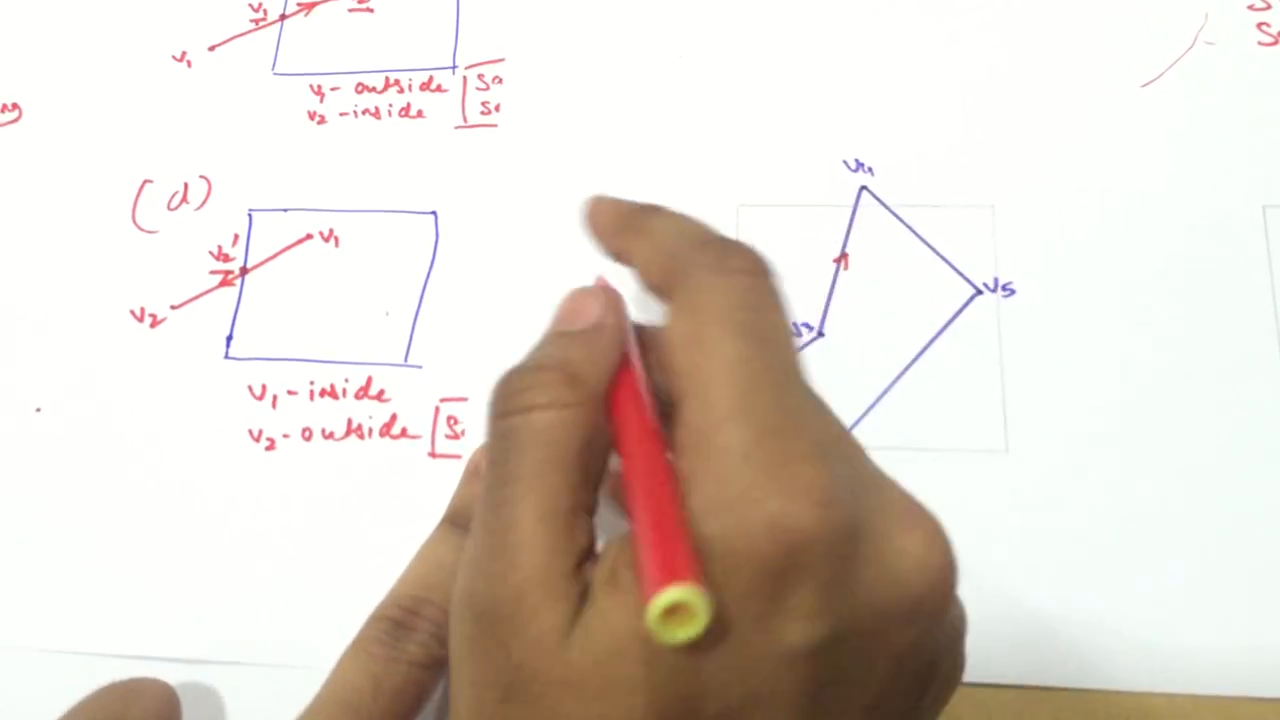 V1
V1
V1 - outside
V2 - inside
(d)
V2'
V1
V2
V1 - inside
V2 - outside
V4
V5
V3